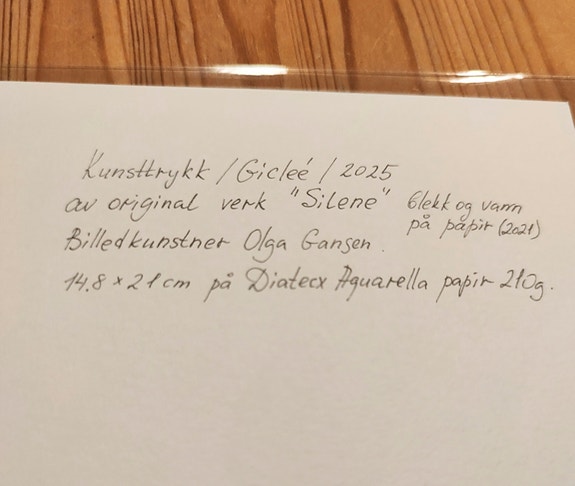 Kunsttrykk / Gicleé / 2025
av original verk "Silene" blekk og vann
på papir (2021)
Billedkunstner Olga Gansen.
14.8 x 21 cm på Diatecx Aquarella papir 210g.